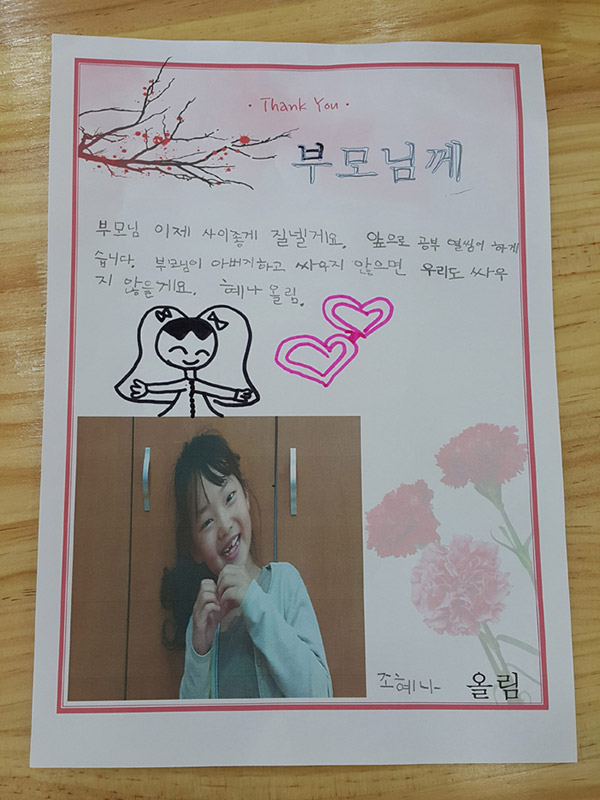 · Thank You ·
부모님께
부모님 이제 사이좋게 질넬게요. 앞으로 공부 열씸이 하게
습니다. 부모님이 아버지하고 싸우지 않으면 우리도 싸우
지 않을게요. 혜나 올림.
조혜나 올림